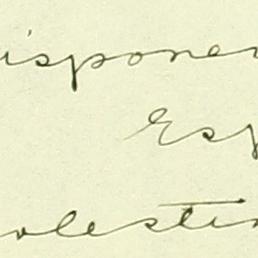 ispone
Esp
olestia